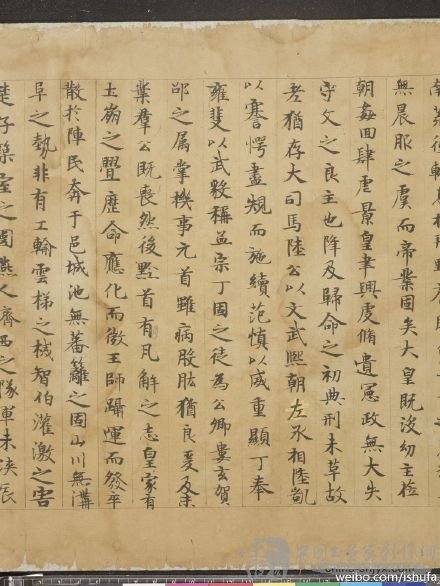 南荒衝
無晨服之虞而帝業固矣大皇既沒幼主莅
朝姦回肆虐景皇聿興虔脩遺憲政無大失
守文之良主也降及歸命之初典刑未草故
老猶存大司馬陸公以文武熙朝左丞相陸凱
以謇愕盡規而施績范慎以威重顯丁奉
雍斐以武毅稱孟宗丁固之徒為公卿婁玄賀
邵之属掌機事元首雖病股肱猶良爰及末
葉羣公既喪然後黔首有瓦解之志皇家有
土崩之舋歷命應化而微王師躡運而發卒
散於陣民奔于邑城池無蕃籬之固山川無溝
阜之勢非有工輸雲梯之械智伯灌激之害
楚子築室之圍燕人濟西之隊軍未浹辰
weibo.com/ishufa